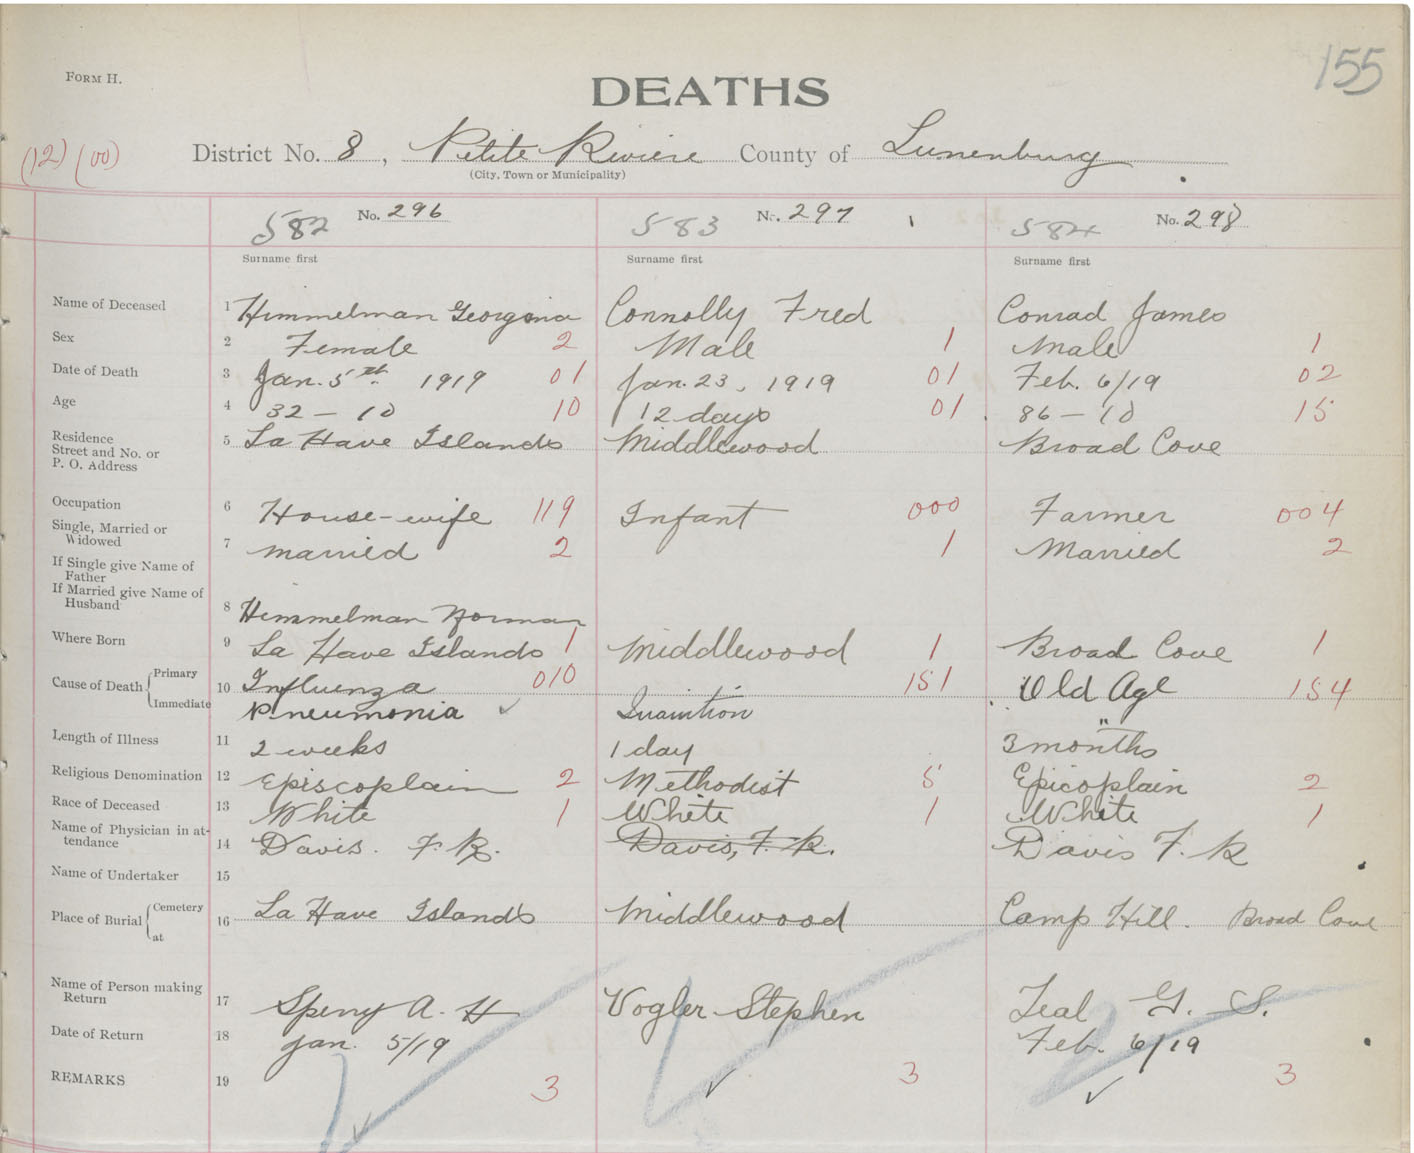 155
FORM H.
DEATHS
(12) (00)
District No. 8, Petite Riviere County of Lunenburg
(City, Town or Municipality)
582 No. 296 583 No. 297 584 No. 298
Surname first Surname first Surname first
Name of Deceased 1 Himmelman Georgina Connolly Fred Conrad James
Sex 2 Female 2 Male 1 Male 1
Date of Death 3 Jan. 5th 1919 01 Jan. 23, 1919 01 Feb. 6/19 02
Age 4 32 – 10 10 12 days 01 86 – 10 15
Residence
Street and No. or
P. O. Address
5 La Have Islands Middlewood Broad Cove
Occupation 6 House-wife 119 Infant 000 Farmer 004
Single, Married or
Widowed
7 married 2 1 Married 2
If Single give Name of
Father
If Married give Name of
Husband
8 Himmelman Norman
Where Born 9 La Have Islands 1 Middlewood 1 Broad Cove 1
Cause of Death Primary 10 Influenza 010 151 Old Age 154
Immediate Pneumonia Inanition "
Length of Illness 11 2 weeks 1 day 3 months
Religious Denomination 12 Episcoplain 2 Methodist 5 Epicoplain 2
Race of Deceased 13 White 1 White 1 White 1
Name of Physician in at-
tendance
14 Davis. F. R. Davis, F. R. Davis F. R
Name of Undertaker 15
Place of Burial Cemetery
at
16 La Have Islands Middlewood Camp Hill. Broad Cove
Name of Person making
Return
17 Sperry A. H Vogler Stephen Teal G. S.
Date of Return 18 Jan. 5/19 Feb. 6/19
REMARKS 19 3 3 3